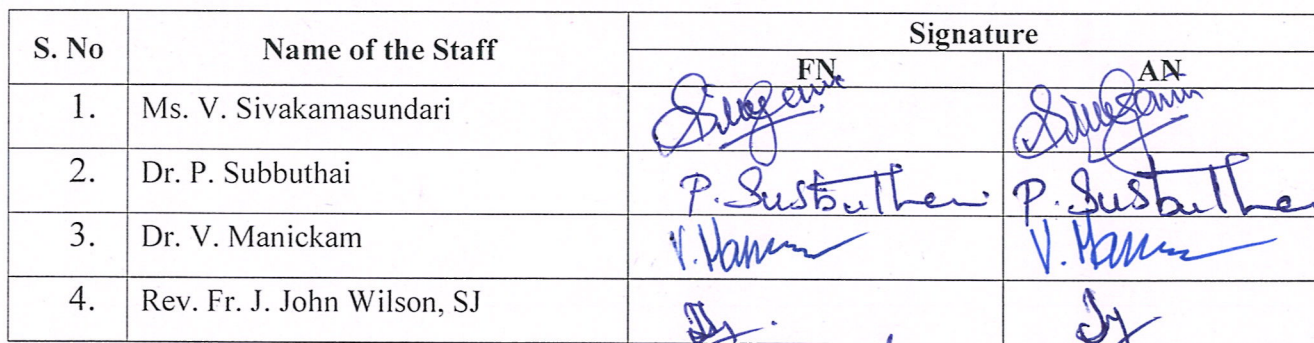 S. No Name of the Staff Signature
FN AN
1. Ms. V. Sivakamasundari
2. Dr. P. Subbuthai P. Subbuthai P. Subbutha
3. Dr. V. Manickam
4. Rev. Fr. J. John Wilson, SJ